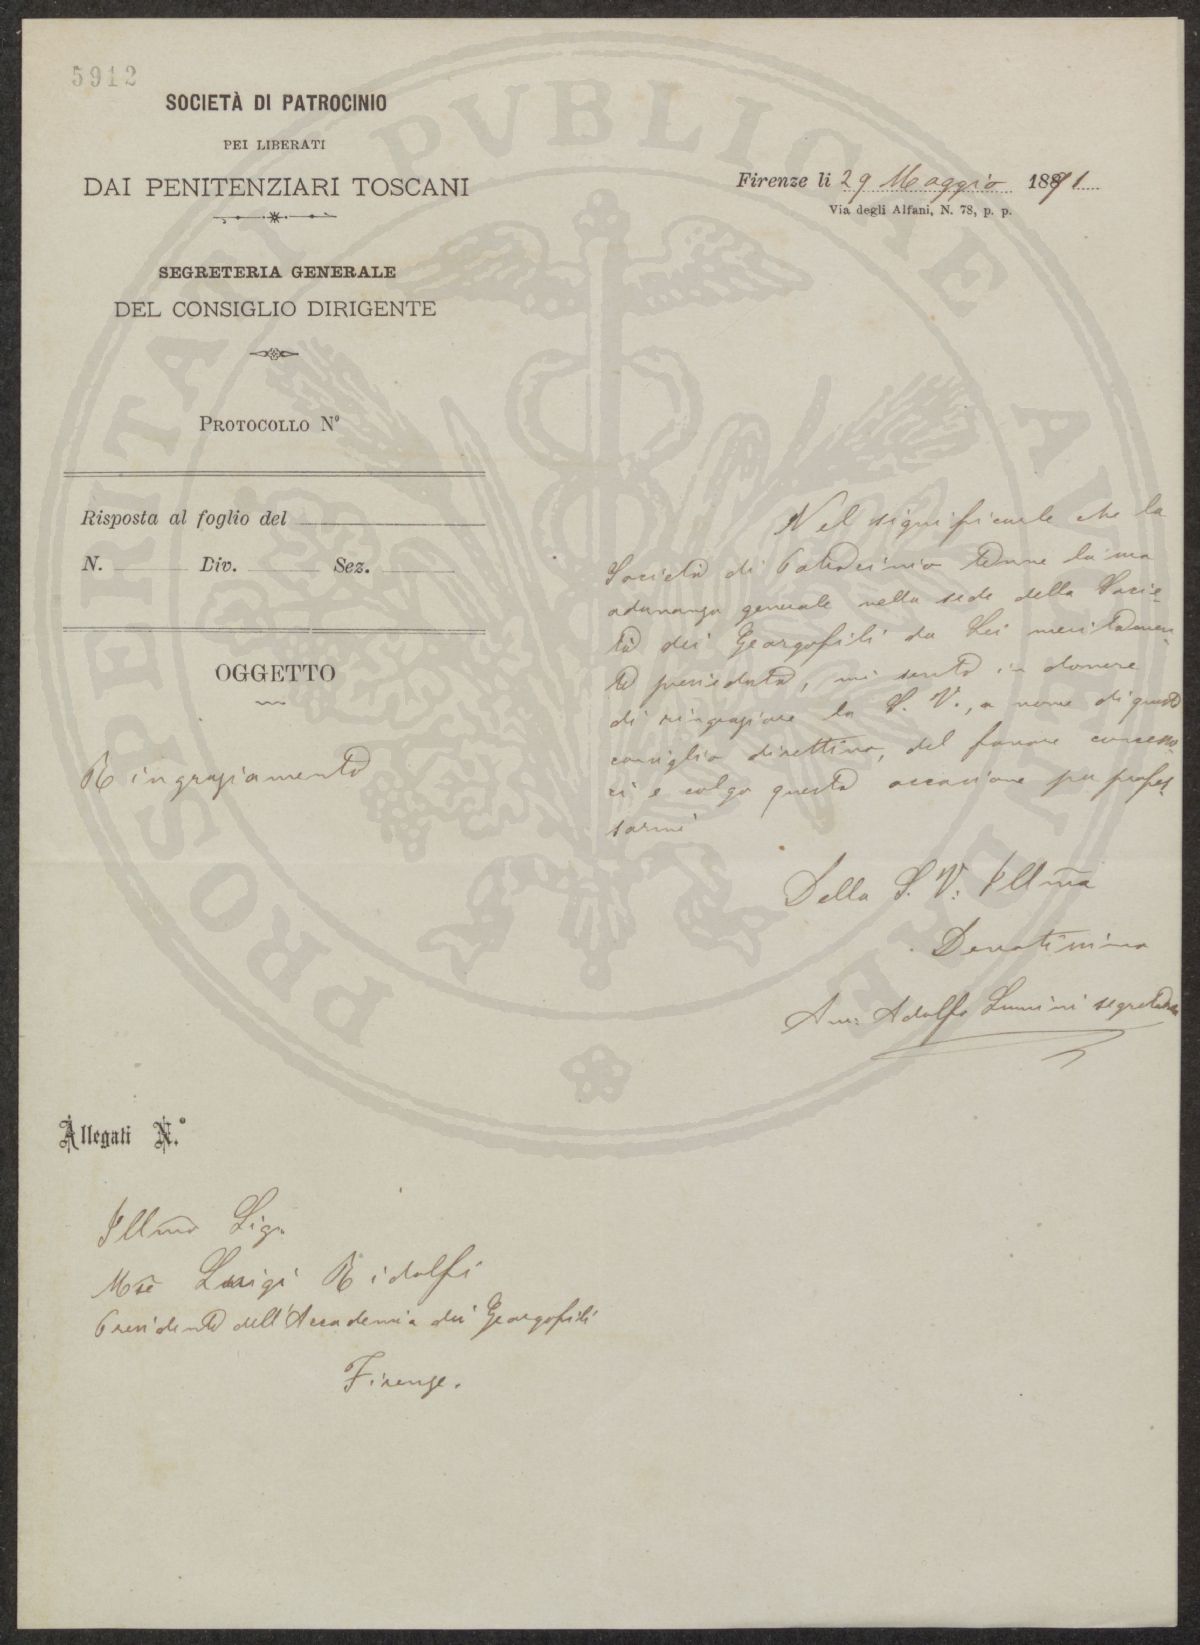 5912
SOCIETÀ DI PATROCINIO
PEI LIBERATI
DAI PENITENZIARI TOSCANI
SEGRETERIA GENERALE
DEL CONSIGLIO DIRIGENTE
PROTOCOLLO N°
Risposta al foglio del
N. Div. Sez.
OGGETTO
Ringraziamento
Firenze li 29 Maggio 1891
Via degli Alfani, N. 78, p. p.
Nel significarle che la
Società di Patrocinio tenne la sua
adunanza generale nella sede della Socie-
tà dei Georgofili da Lei meritamen-
te presieduta, mi sento in dovere
di ringraziare la S. V., a nome di questo
consiglio direttivo, del favore concesso-
ci e colgo questa occasione per profes-
sarmi
Della S. V. Illma
Devotissimo
Avv: Adolfo Lumini segretario
Allegati N.°
Illmo Sig.
Mse Luigi Ridolfi
Presidente dell'Accademia dei Georgofili
Firenze.
PROSPERITATI PVBLICAE AVGENDAE